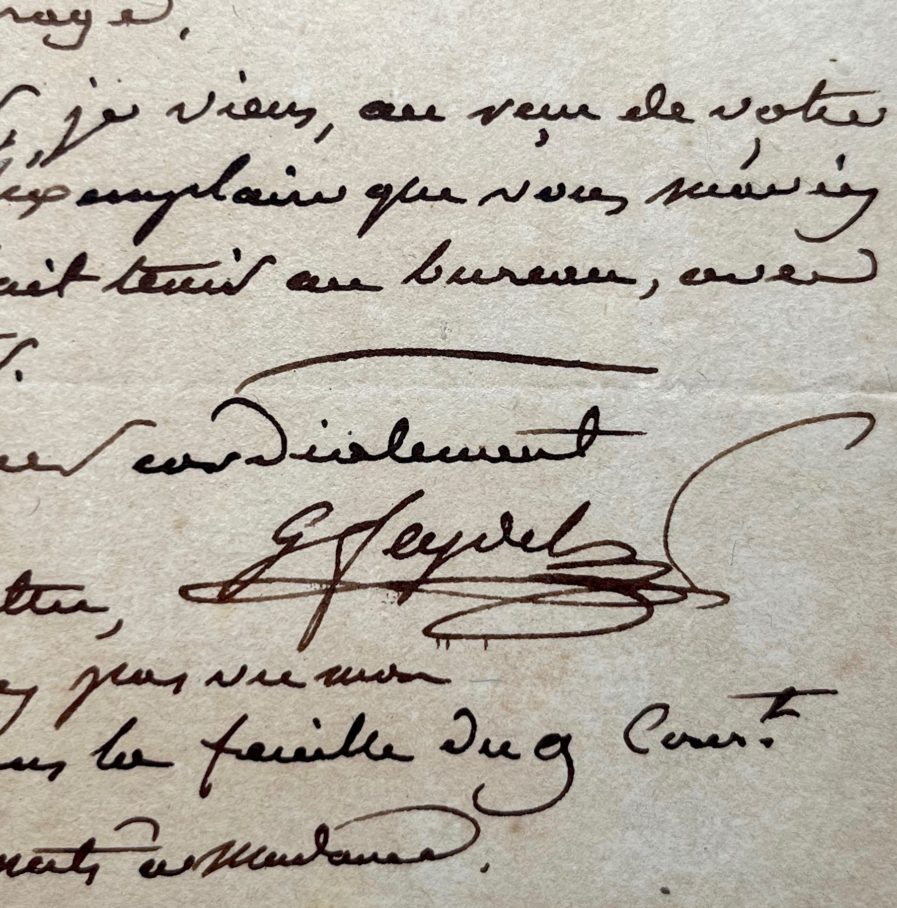 rage.
, je viens, au reçu de votre
exemplaire que vous m'aviez
ait tenir au bureau, avec
cordialement
G Feydel
ttre,
pas vu mon
dans la feuille du 9 Cour.t
ments à Madame.